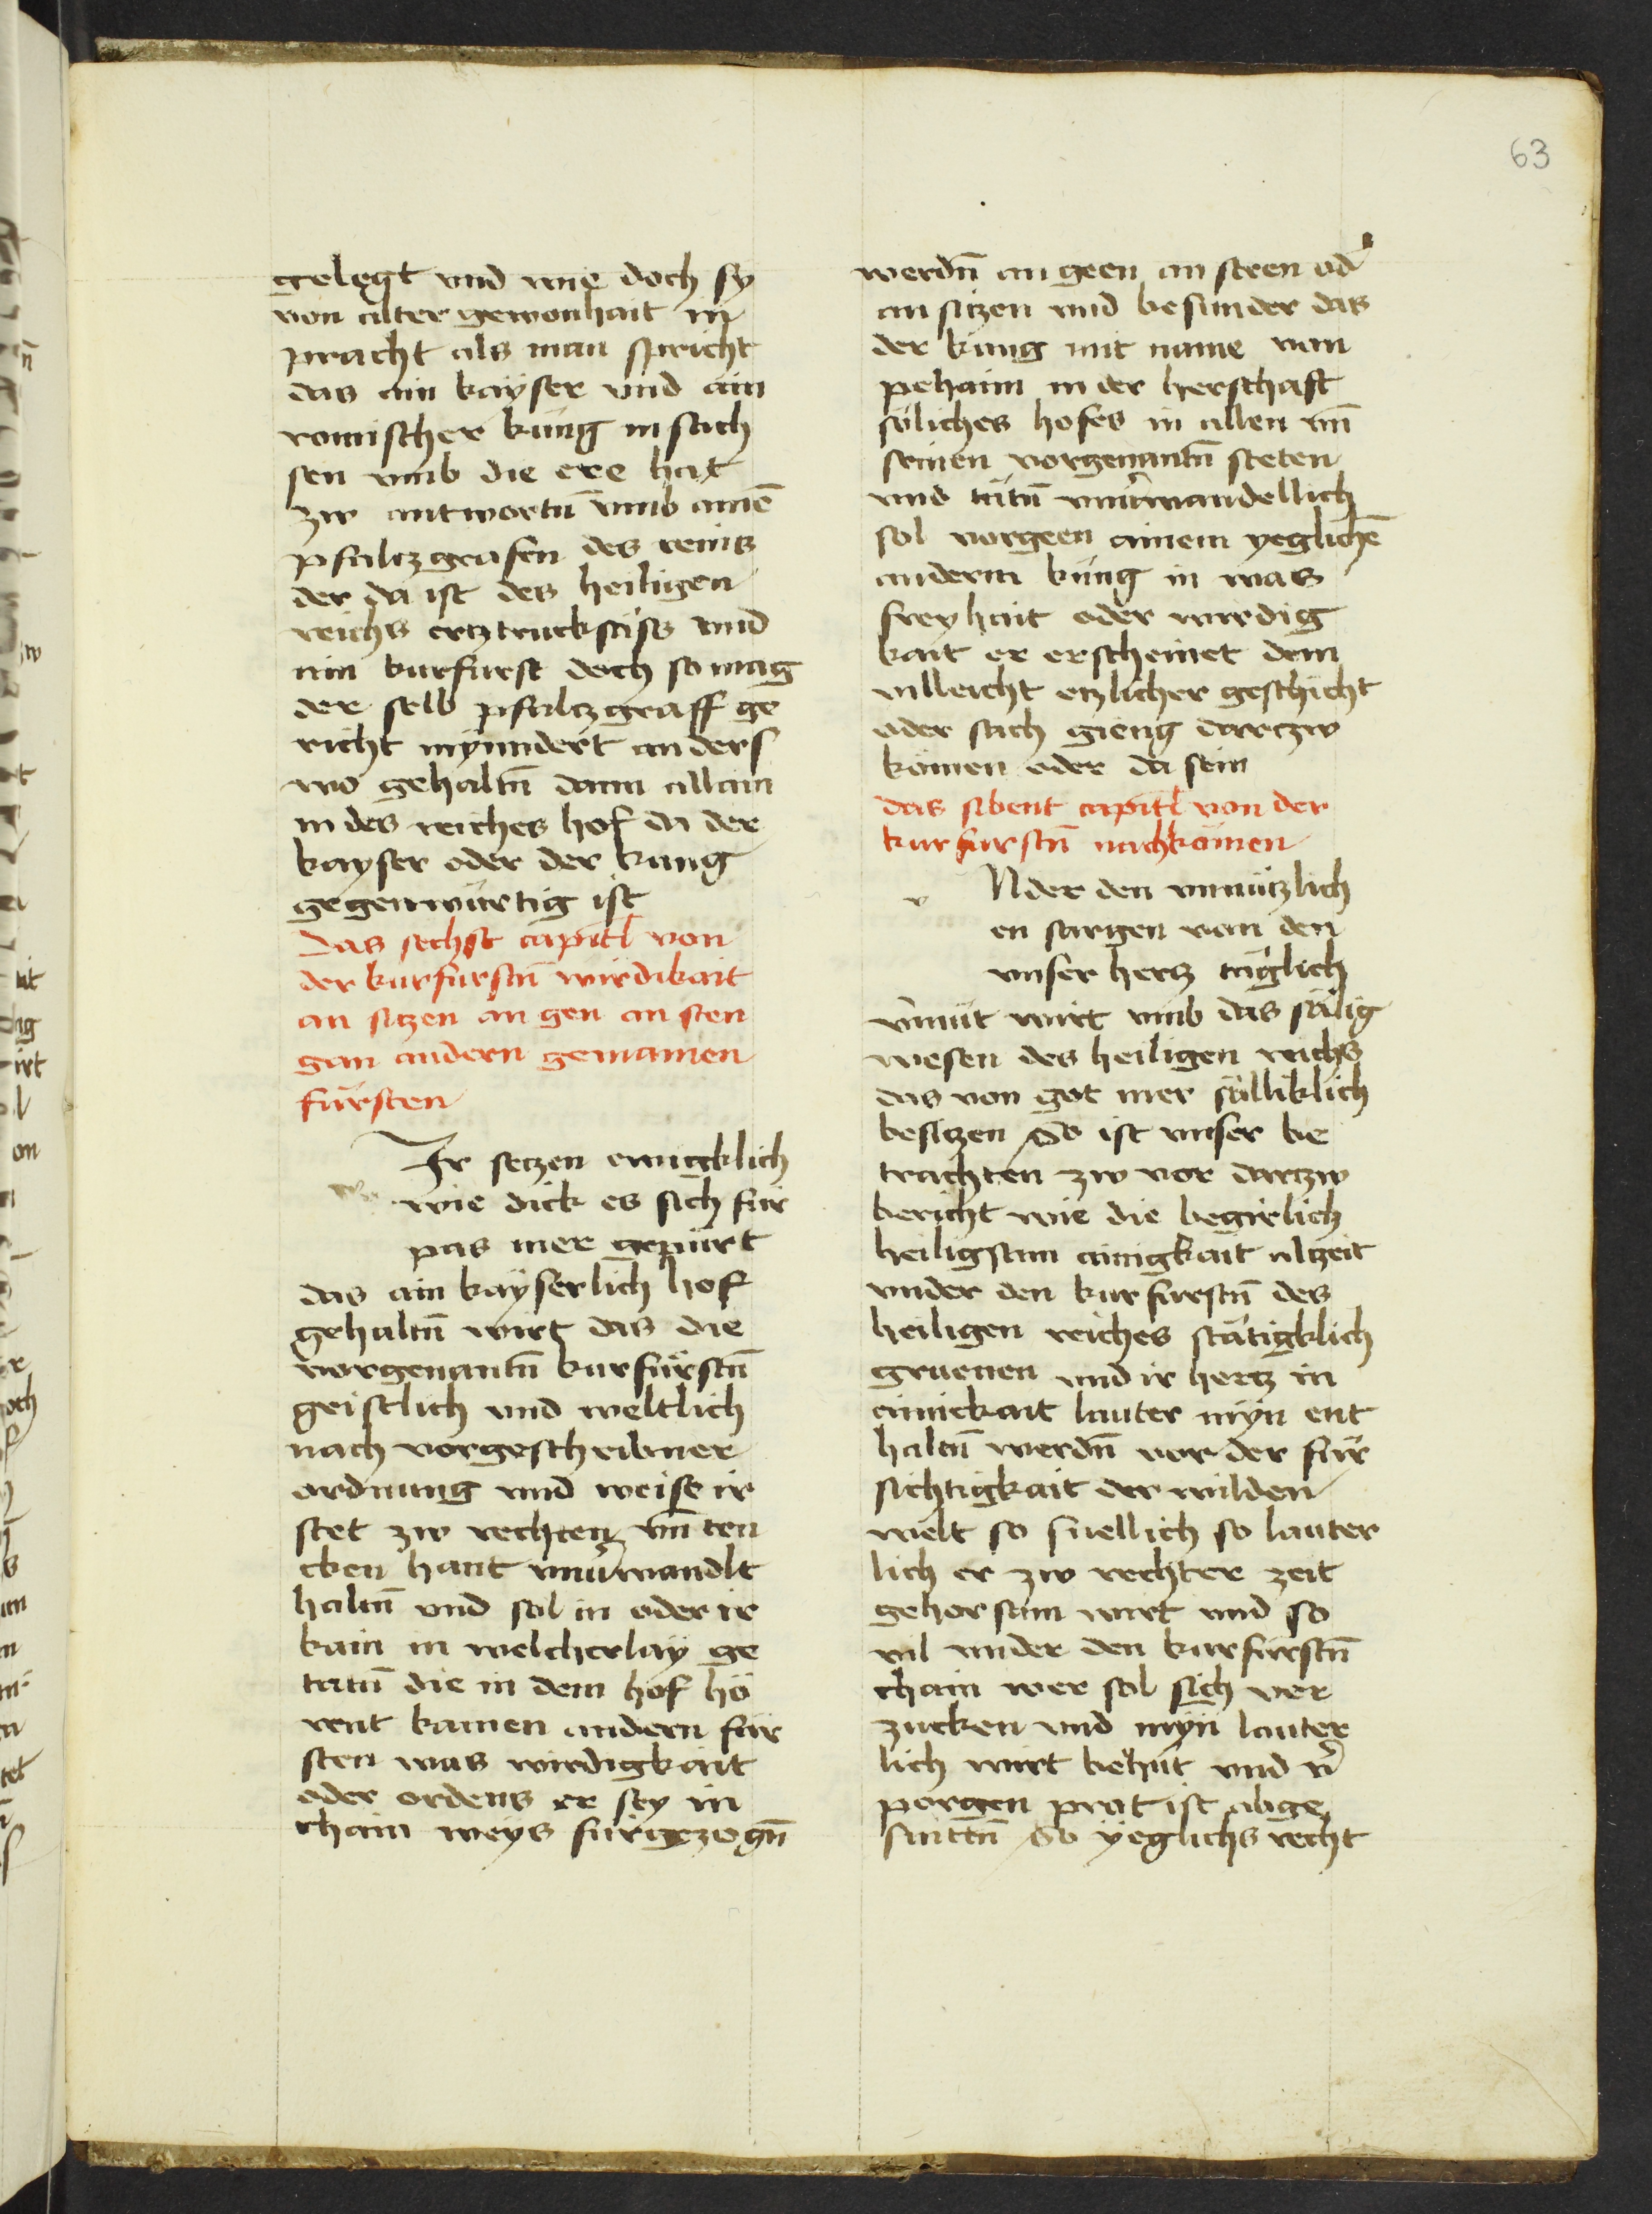 63
gelegt vnd wie doch sy
von alter gewonhait in
pracht als man spricht
das ain kayser vnd ain
romischer kung in sach
sen vmb die ere hat
zw antwortn̄ vmb ainē
pfaltzgrafen des reins
der da ist des heiligen
reichs ertztrucksäss vnd
ain kurfurst doch so mag
der selb pfaltzgraff ge
richt nyinndert anders
wo gehaltn̄ dann allain
in des reiches hof da der
kayser oder der kung
gegenwürtig ist
Das sechst capitl von
der kurfurstn̄ wirdikait
an sitzen an gen an sten
gan andern gemainen
fürsten
Ir setzen ewigklich
wie dick es sich für
pas mer gepürt
das ain kayserlich hof
gehaltn̄ wirt das die
vorgenantn̄ kurfürstn̄
geistlich vnd weltlich
nach vorgeschribner
ordnung vnd weise ir
stet zw rechten vn̄ ten
cken hant vnu̇wandlt
haltn̄ vnd sol in oder ir
kain in welcherlay ge
tatn̄ die in dem hof hö
rent kainen andern für
sten was wirdigkait
oder ordens er sey in
chain weys fürgezogn̄
werdn̄ an geen an steen od̓
an sitzen vnd besunder das
der kung mit name von
pehaim in der herschaft
söliches hofes in allen vn̄
seinen vorgenantn̄ steten
vnd tätn̄ vnu̇wandellich
sol vorgeen ainem yeglichē
anderm küng in was
freyhait oder wirdig
kait er erscheinet dem
villeicht etzlicher geschicht
oder sach gieng darczw
kömen oder da sein
das sibent capitl von der
kurfurstn̄ nachkömen
v
Nder den vnnützlich
en sorgen von den
vnser hertz täglich
v̓müt wirt vmb das sälig
wesen des heiligen reichs
das von got mer sälliklich
besitzen So ist vnser be
trachten zw vor dartzw
bericht wie die begirlich
heiligsam ainigkait alzeit
vnder den kurfürstn̄ des
heiligen reiches stätigklich
gruenen vnd ir hertz in
ainickait lauter myn ent
haltn̄ werdn̄ vor der für
sichtigkait der wilden
welt so snellich so lauter
lich er zw rechter zeit
gehorsam wirt vnd so
vil vnder den kurfürstn̄
chain wer sol sich ver
zucken vnd myn lauter
lich wirt behüt vnd v̓
porgen prat ist abge
snittn̄ So yeglichs recht